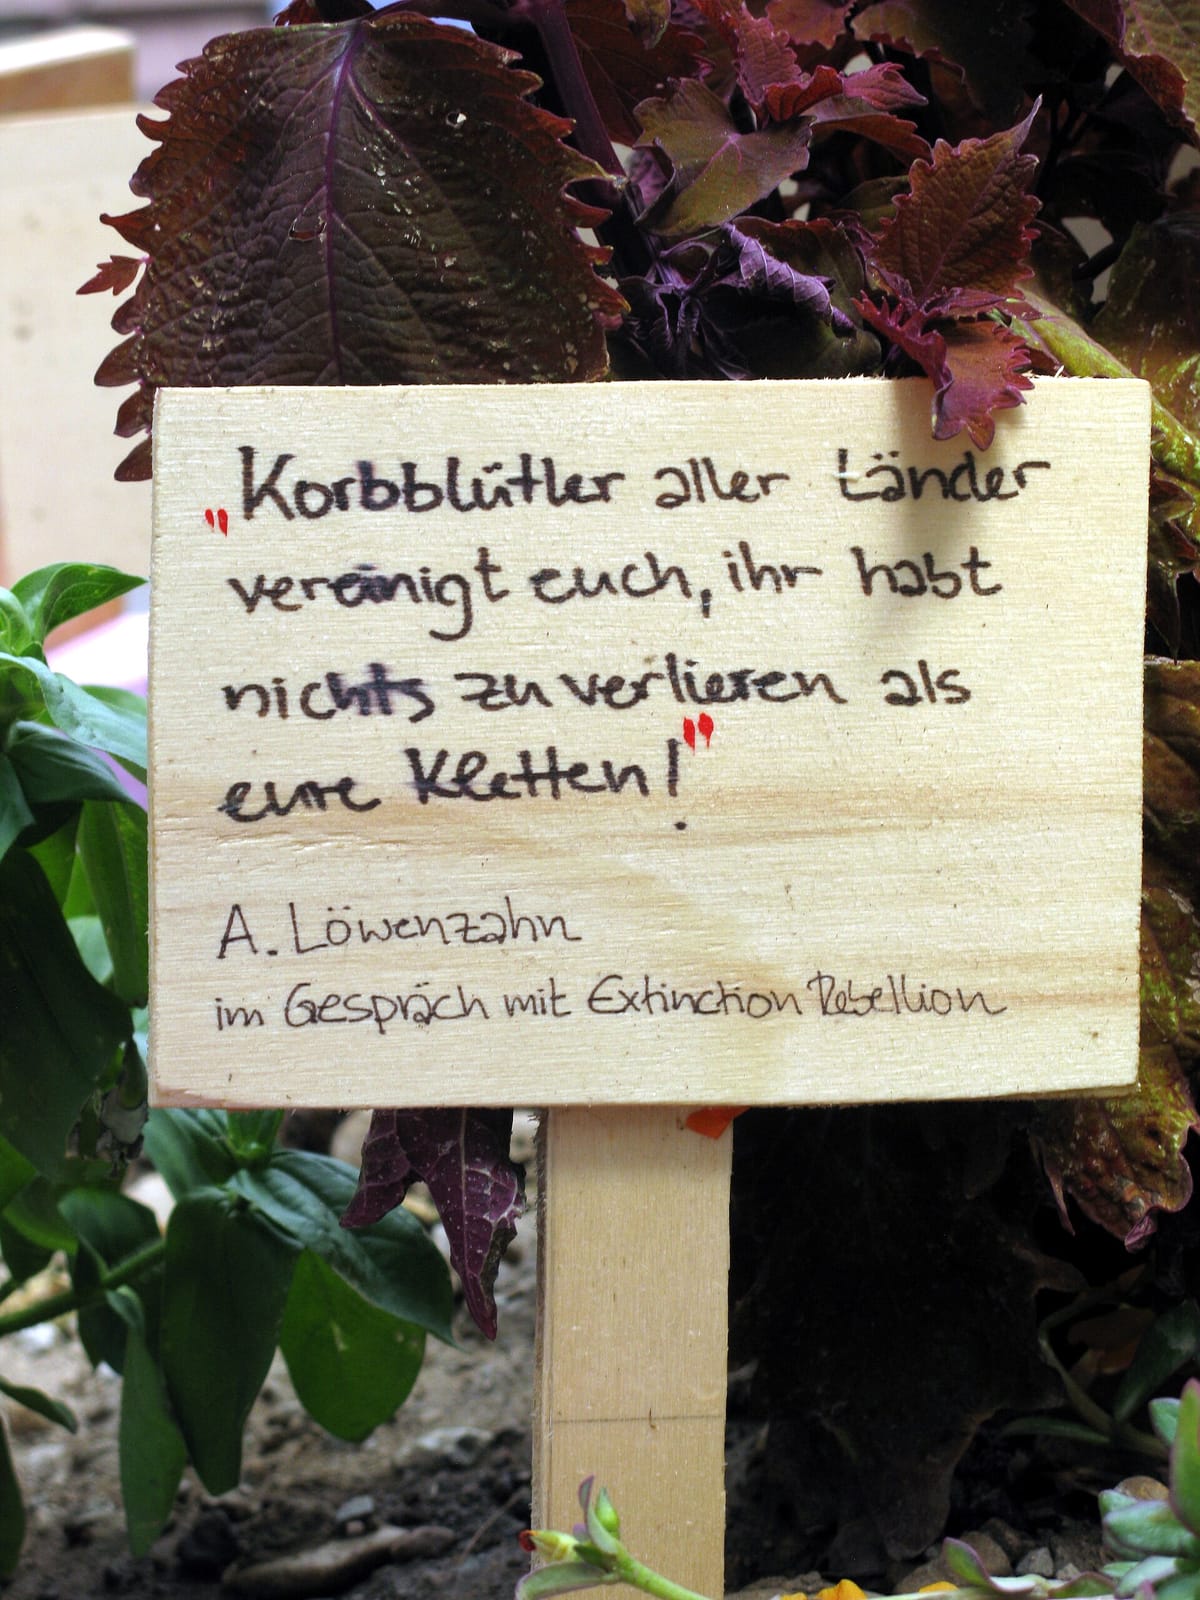 „Korbblütler aller Länder
vereinigt euch, ihr habt
nichts zu verlieren als
eure Kletten!"
A. Löwenzahn
im Gespräch mit Extinction Rebellion